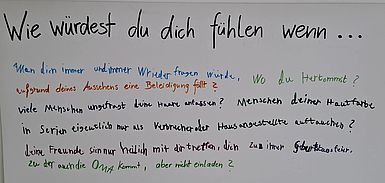 Wie würdest du dich fühlen wenn ...
Man dich immer und immer wieder fragen würde, Wo du Herkommst?
aufgrund deines Aussehens eine Beleidigung fällt?
viele Menschen ungefragt deine Haare anfassen? Menschen deiner Hautfarbe
in Serien eigentlich nur als Verbrecher oder Hausangestellte auftauchen?
deine Freunde sich nur heimlich mit dir treffen, dich zu ihrer Geburtstagsfeier,
zu der auch die OMA kommt, aber nicht einladen?